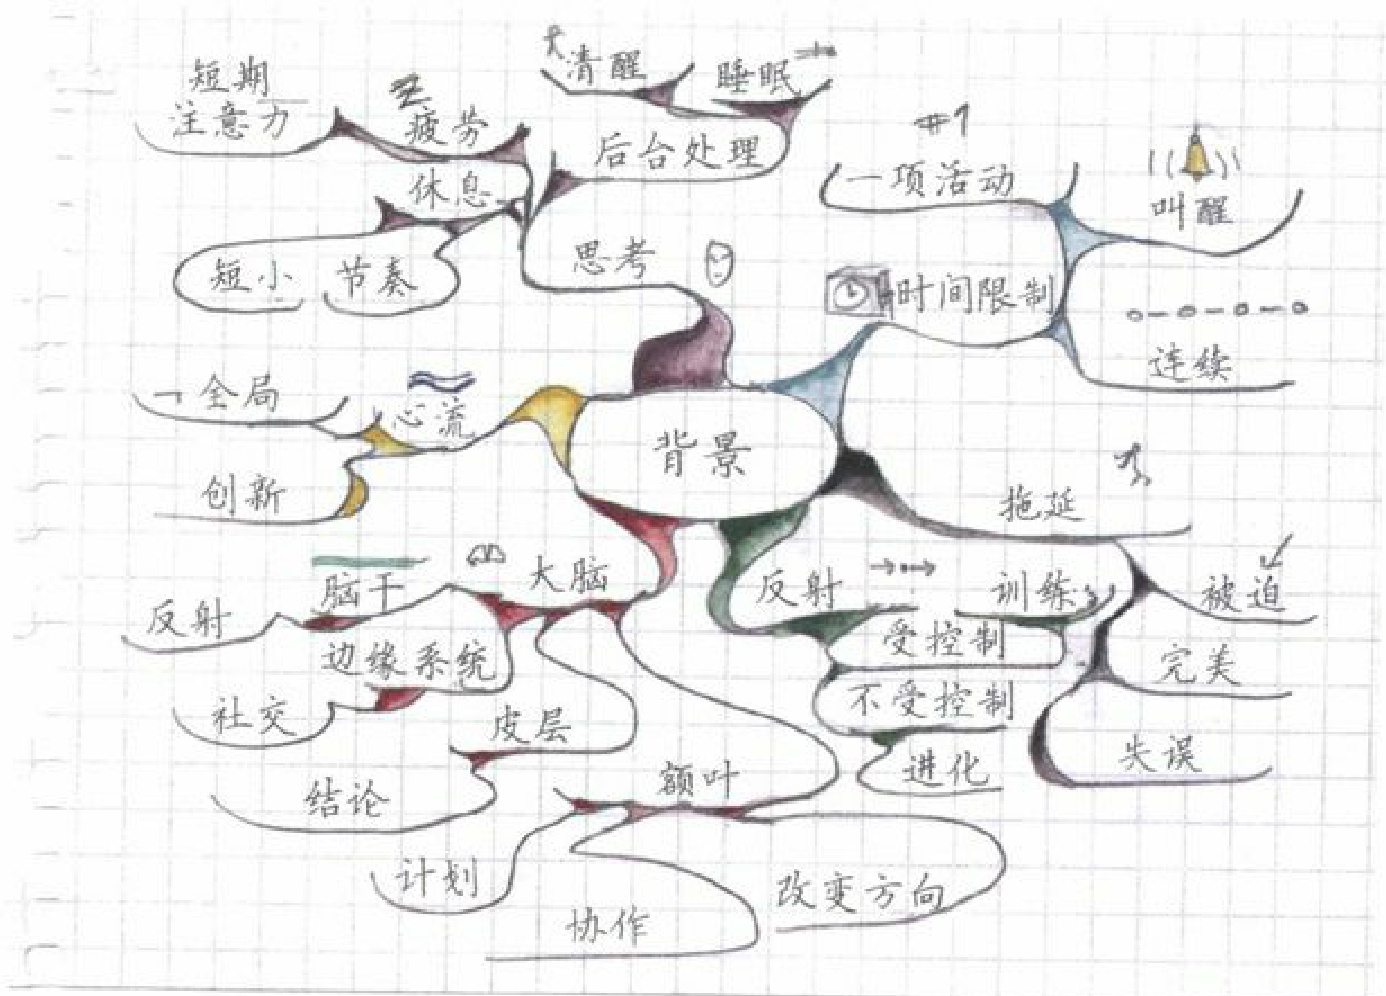 清醒
睡眠
短期
注意力
疲劳
后台处理
#1
一项活动
叫醒
休息
短小
节奏
思考
时间限制
连续
全局
心流
创新
背景
拖延
脑干
大脑
反射
反射
训练
被迫
边缘系统
受控制
完美
社交
皮层
不受控制
失误
结论
额叶
进化
计划
改变方向
协作